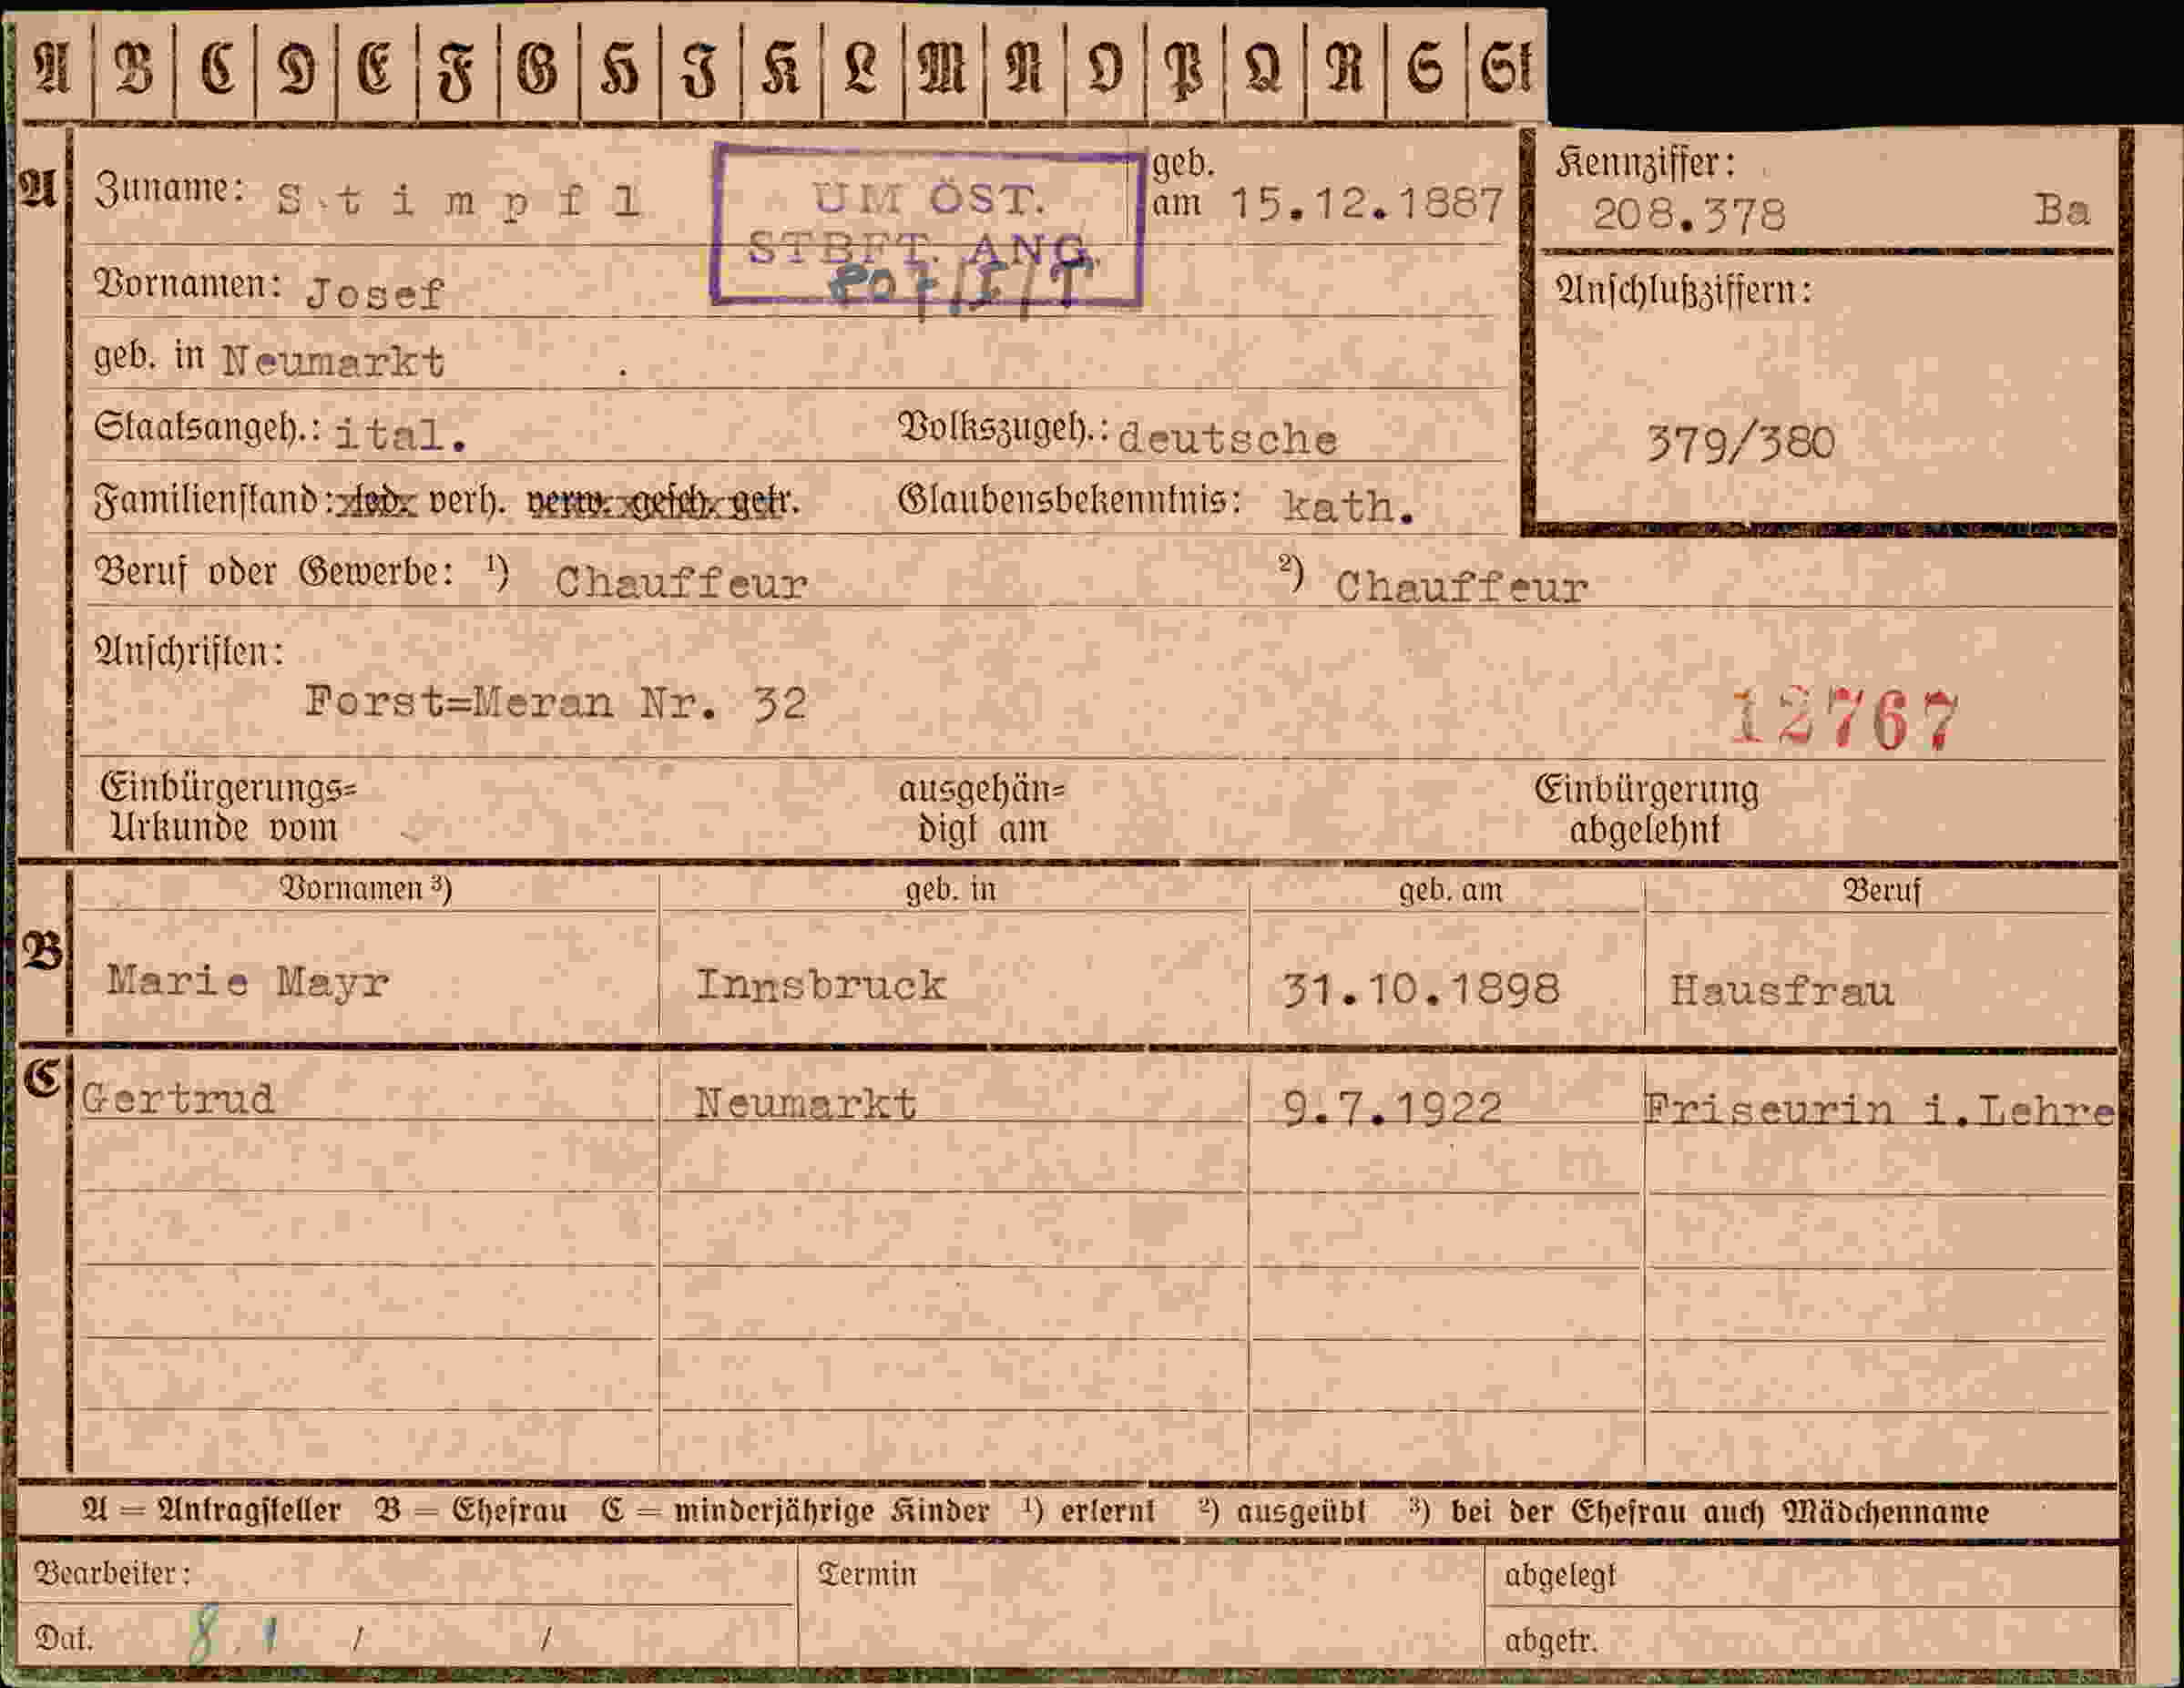 A B C D E F G H J K L M N O P Q R S St
A Zuname: Stimpfl geb. am 15.12.1887
UM ÖST.
STBFT. ANG.
Kennziffer:
208.378 Ba
Vornamen: Josef
Anschlußziffern:
geb. in Neumarkt
Staatsangeh.: ital. Volkszugeh.: deutsche
379/380
Familienstand: led. verh. verw. gesch. getr. Glaubensbekenntnis: kath.
Beruf oder Gewerbe: 1) Chauffeur 2) Chauffeur
Anschriften:
Forst=Meran Nr. 32
12767
Einbürgerungs= ausgehän= Einbürgerung
Urkunde vom digt am abgelehnt
Vornamen 3) geb. in geb. am Beruf
B Marie Mayr Innsbruck 31.10.1898 Hausfrau
C Gertrud Neumarkt 9.7.1922 Friseurin i.Lehre
A = Antragsteller B = Ehefrau C = minderjährige Kinder 1) erlernt 2) ausgeübt 3) bei der Ehefrau auch Mädchenname
Bearbeiter: Termin abgelegt
Dat. 8.1 / / abgetr.